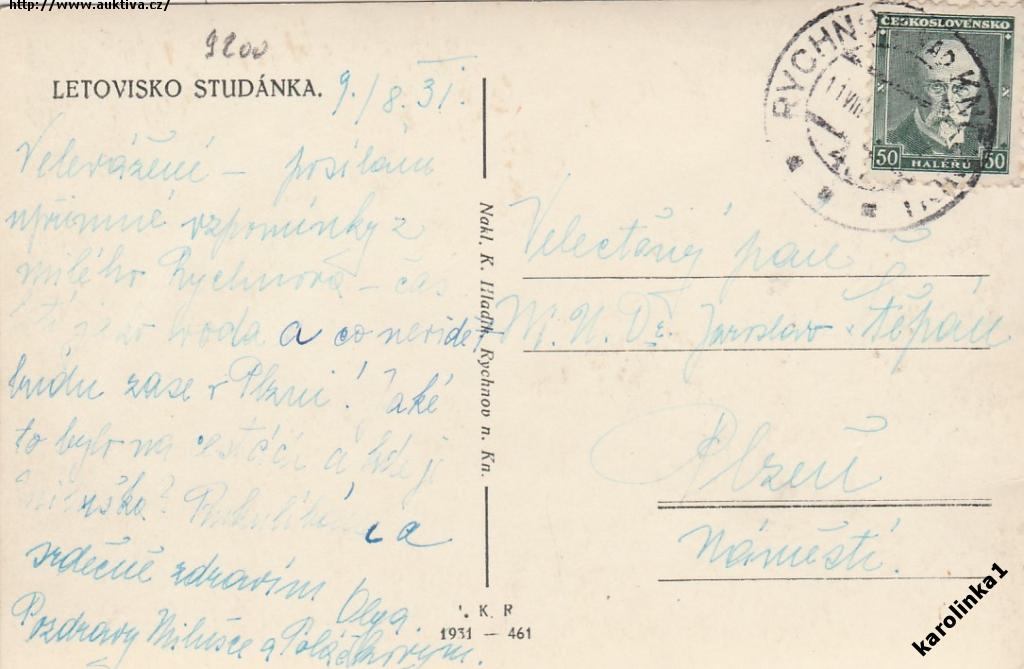 http://www.auktiva.cz/
9200
LETOVISKO STUDÁNKA.
9./8. 31.
Velevážení – posílám
upřímné vzpomínky z
milého Rychnova – čas
letí jako voda a co nevidět
budu zase v Plzni! Jaké
to bylo na a kde je
Miluška? a
srdečně zdravím Olga.
Pozdravy Milušce a Poláčkovým.
Nakl. K. Hladík, Rychnov n. Kn.
K. R
1931 – 461
RYCHNOV NAD KNĚŽNOU
11 VIII
ČESKOSLOVENSKO
50 HALÉŘŮ 50
Velectěný pan
M. U. Dr. Jaroslav Štěpán
Plzeň
Náměstí.
karolinka1